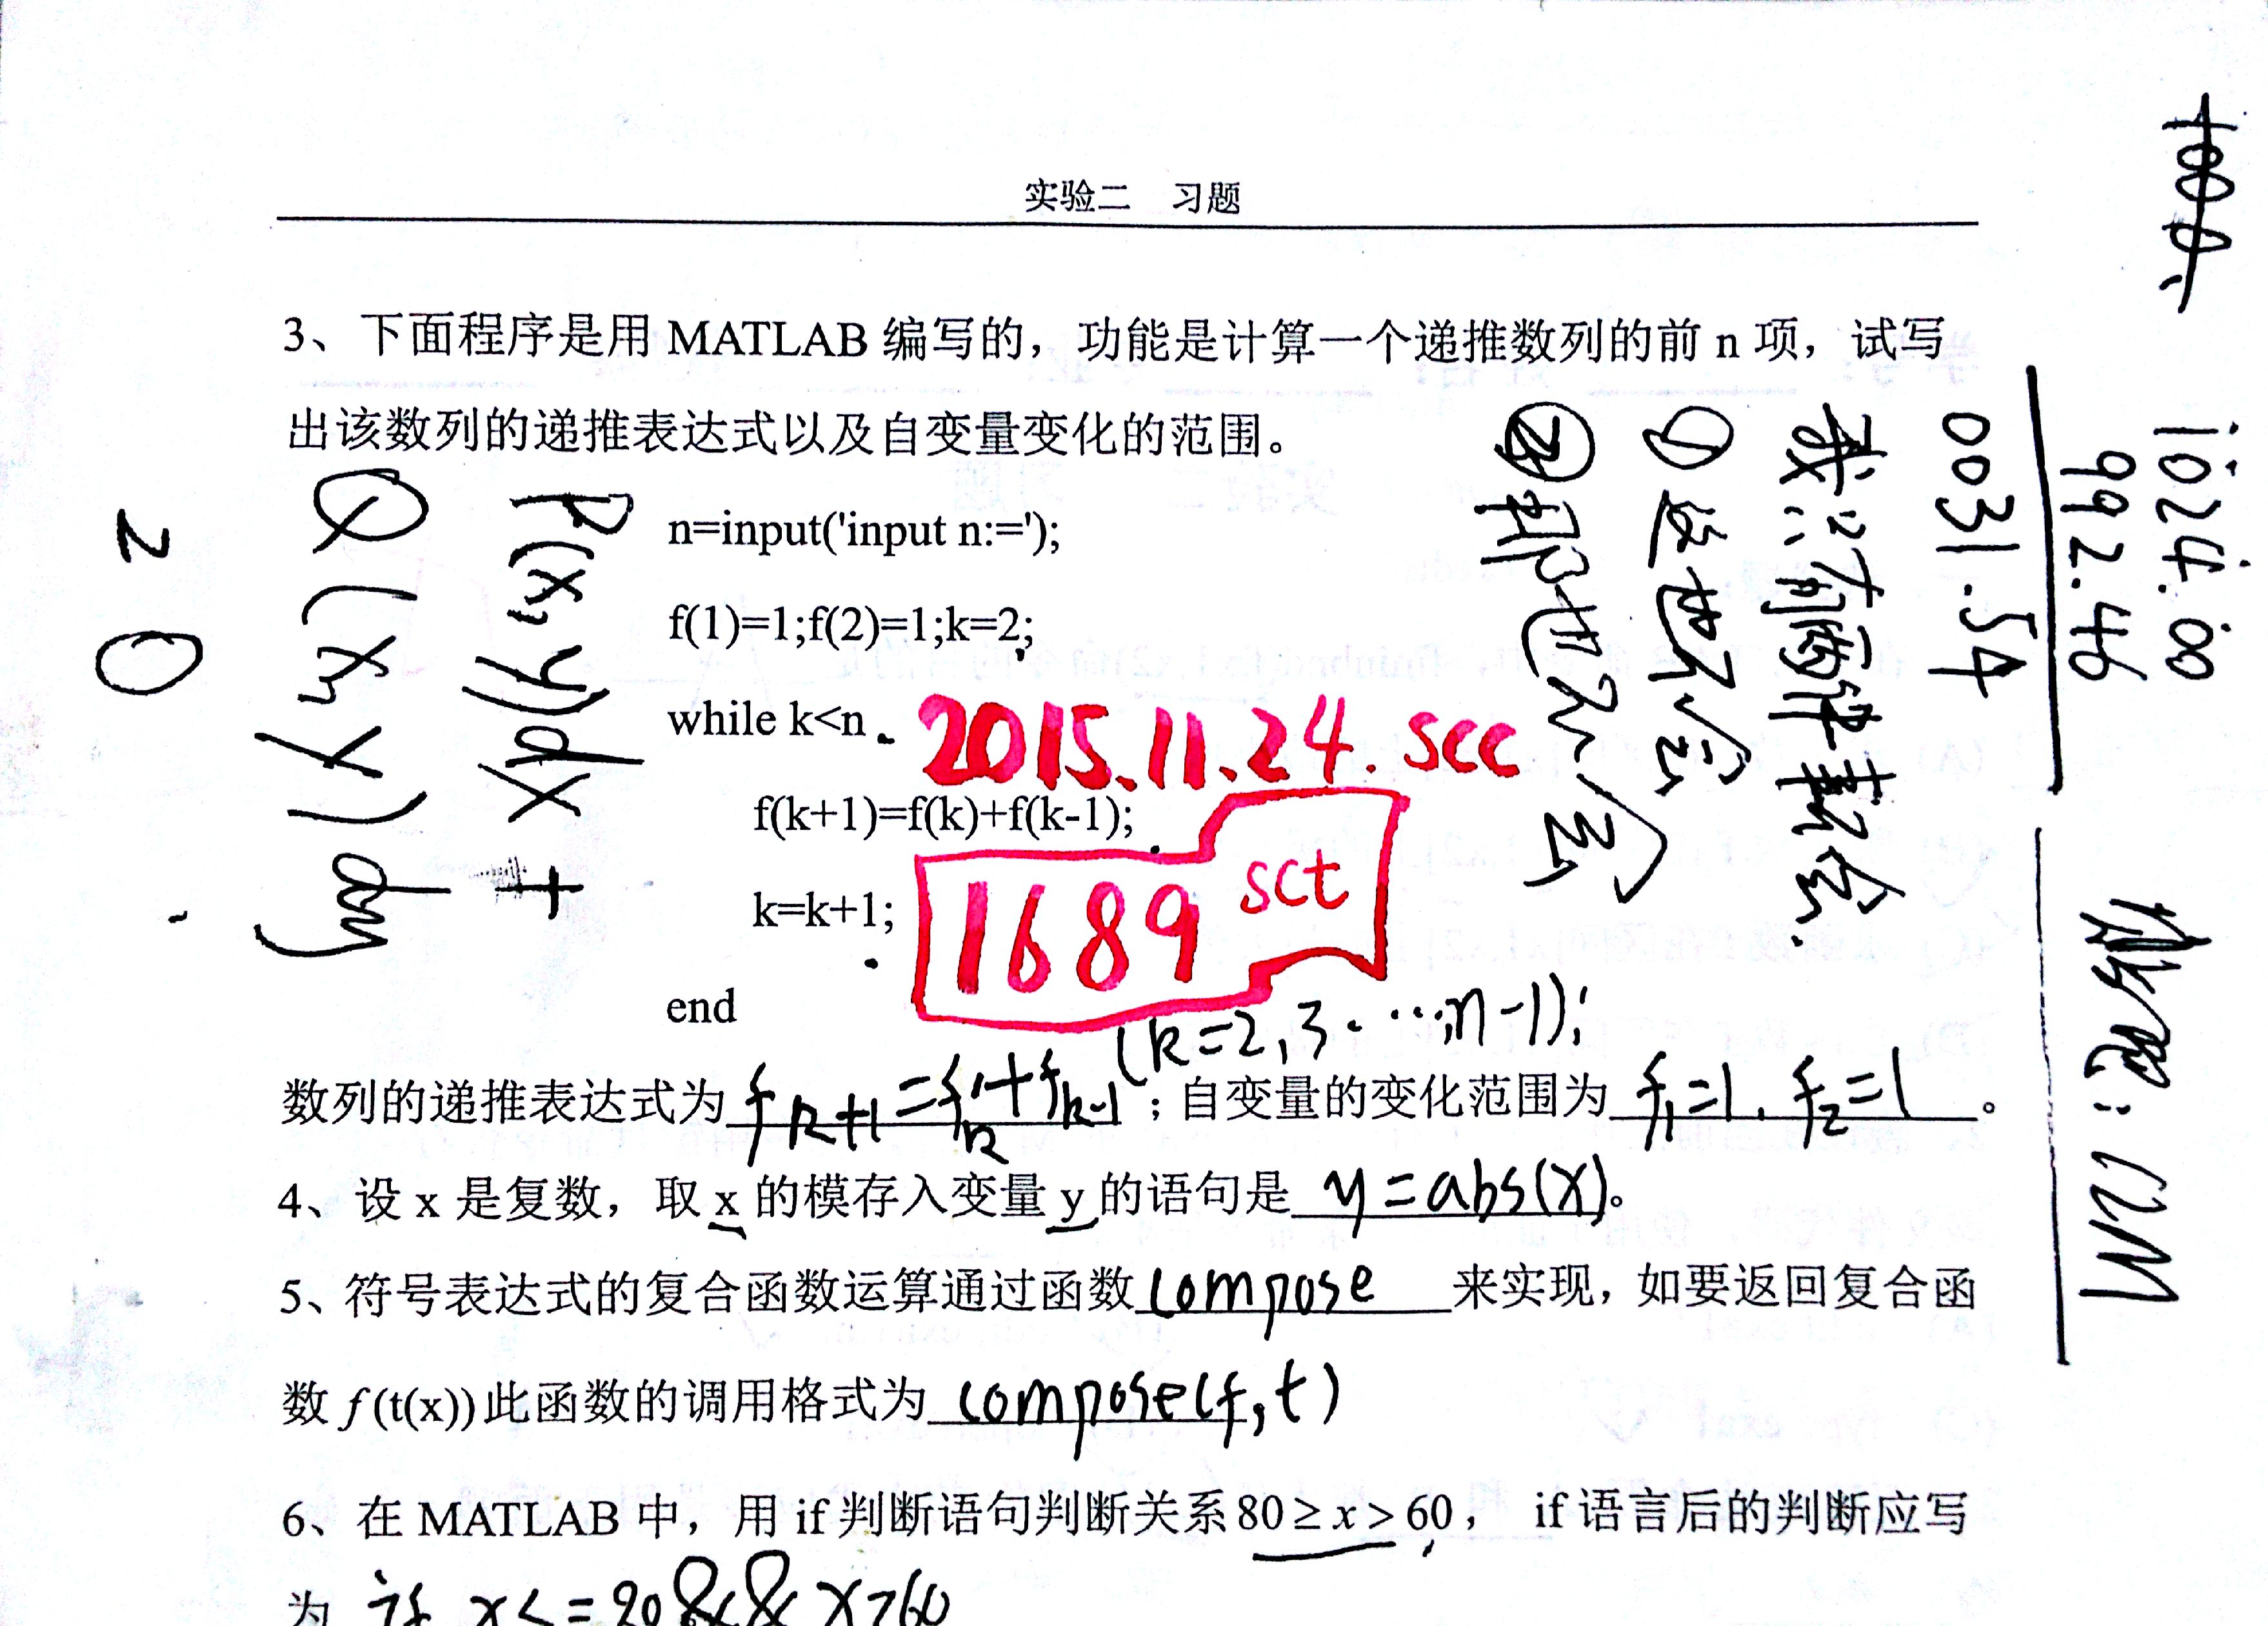 实验二 习题
3、下面程序是用 MATLAB 编写的，功能是计算一个递推数列的前 n 项，试写
出该数列的递推表达式以及自变量变化的范围。
n=input('input n:=');
f(1)=1;f(2)=1;k=2;
while k<n
2015.11.24.scc
f(k+1)=f(k)+f(k-1);
1689 sct
k=k+1;
end
(k=2,3…,n-1);
数列的递推表达式为 f k+1 = f k + f k-1 ；自变量的变化范围为 f1=1, f2=1 。
4、设 x 是复数，取 x 的模存入变量 y 的语句是 y=abs(x)。
5、符号表达式的复合函数运算通过函数 compose 来实现，如要返回复合函
数 f (t(x)) 此函数的调用格式为 compose(f,t)
6、在 MATLAB 中，用 if 判断语句判断关系 80 ≥ x > 60， if 语言后的判断应写
为 if x<=80&&x>60
P(x,y)dx +
Q(x,y)dy
20
1024.00
992.46
0031.54
我只有两件事会
①这也不会
②那也不会